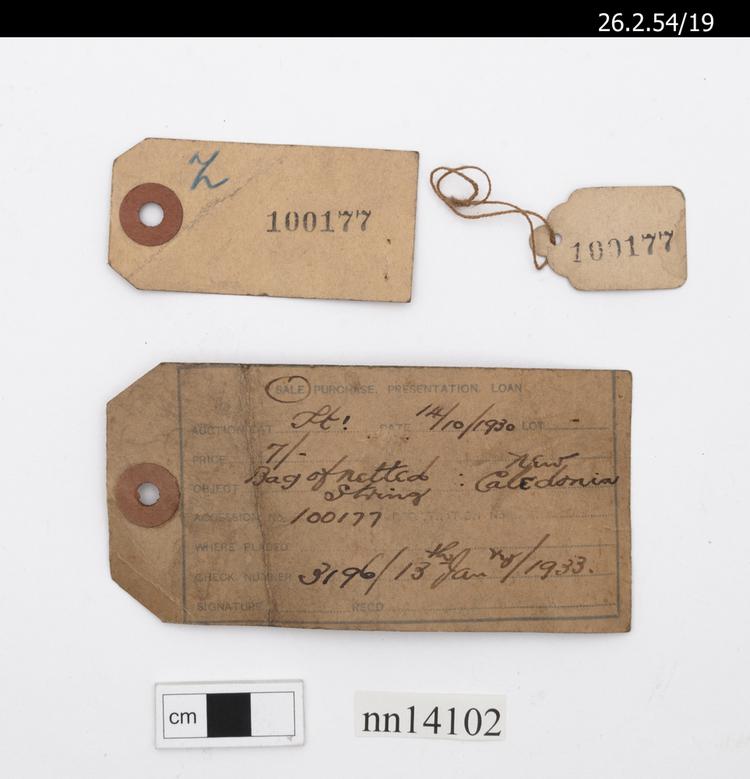 26.2.54/19
Z
100177
100177
SALE, PURCHASE, PRESENTATION, LOAN
AUCTION CAT St! DATE 14/10/1930 LOT -
PRICE 7/-
OBJECT Bag of netted String : New Caledonia
ACCESSION No. 100177
WHERE PLACED
CHECK NUMBER 3196/13th Janry/1933.
SIGNATURE RECD
cm
nn14102